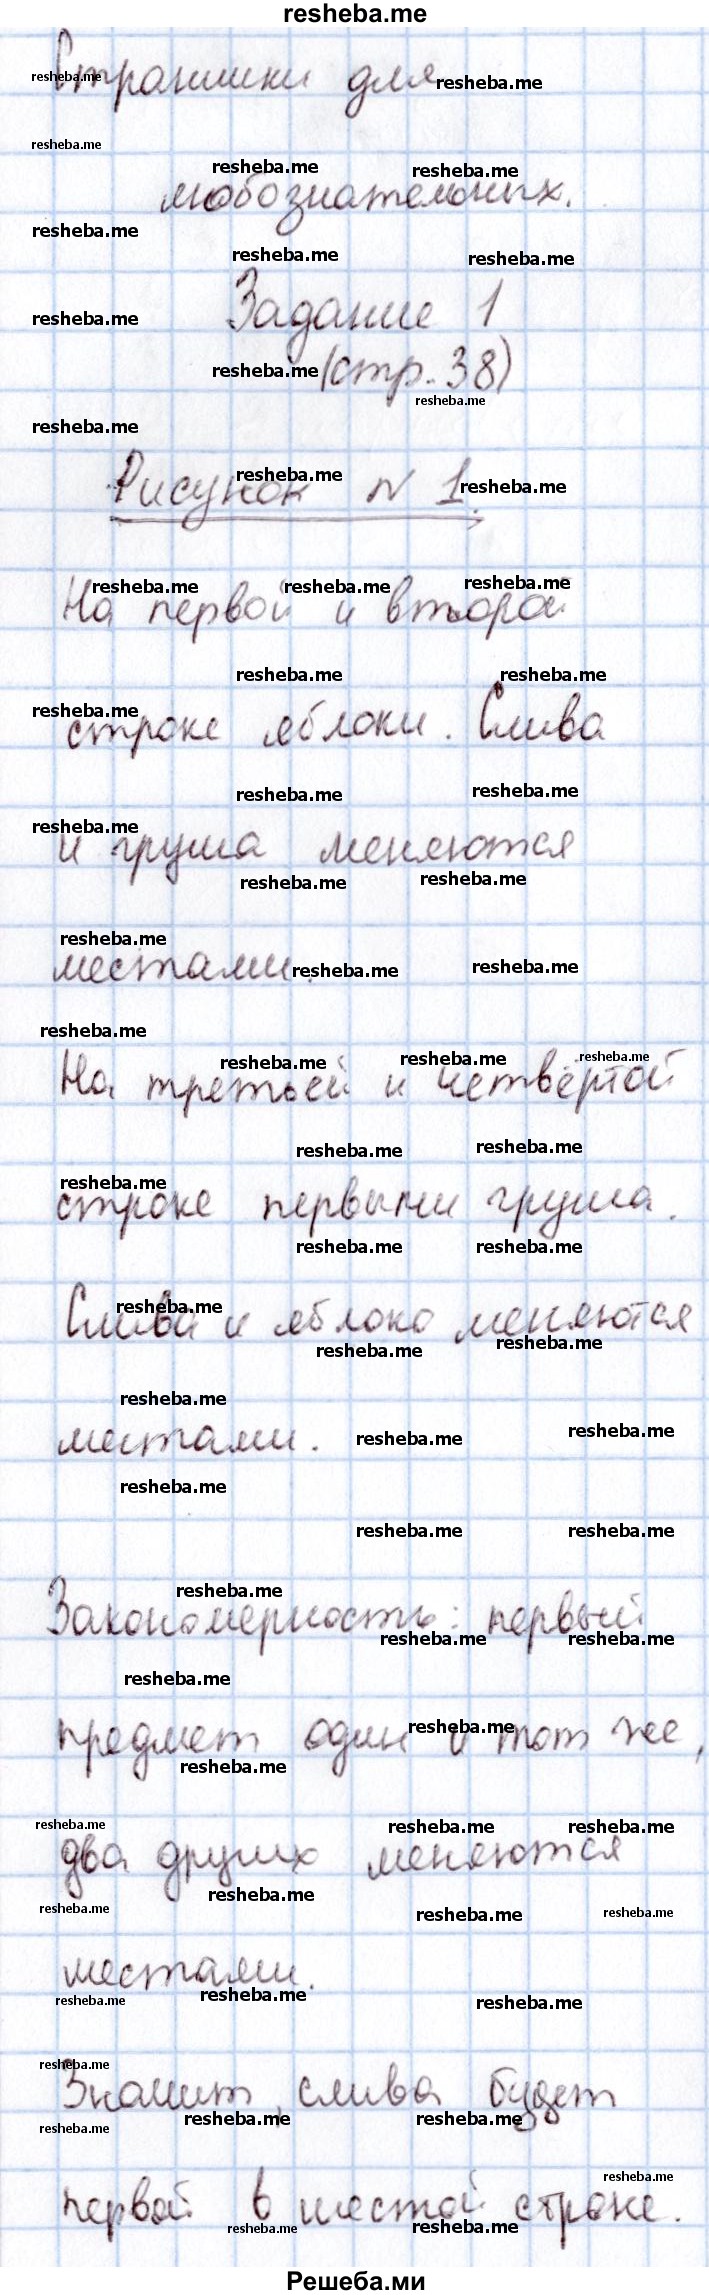 resheba.me
Странички для
любознательных.
Задание 1
(стр. 38)
Рисунок N 1.
На первой и второй
строке яблоки. Слива
и груша меняются
местами.
На третьей и четвёртой
строке первыми груша.
Слива и яблоко меняются
местами.
Закономерность: первый
предмет один и тот же,
два других меняются
местами.
Значит, слива будет
первой в шестой строке.
Решеба.ми